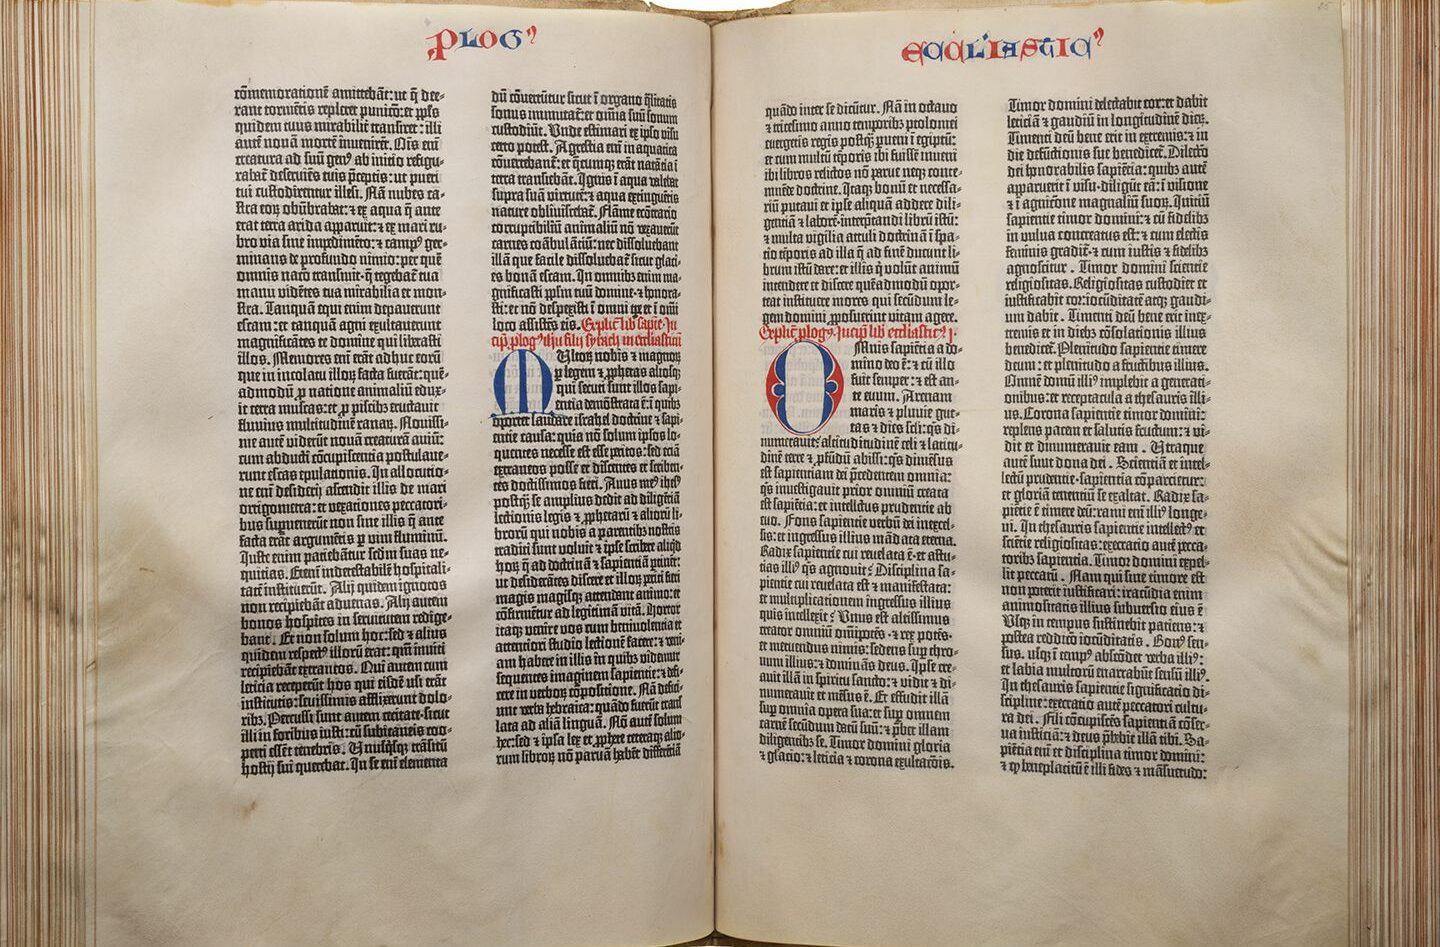 PLOG⁹
ECCLIASTIC⁹
cōmemorationē amittebāt: ut q̄ dee-
rant tormētis repleret punicō: et ppl̄s
quidem tuus mirabilit̄ transiret: illi
autē nouā mortē inuenirēt. Om̄is enī
creatura ad suū gen⁹ ab inicio refigu-
rabat̄ deseruiēs tuis p̄ceptis: ut pueri
tui custodirentur illesi. Nā nubes ca-
stra eoꝝ obūbrabat: ⁊ ex aqua q̄ ante
erat terra arida apparuit: et ex mari ru-
bro via sine impedimēto: ⁊ camp⁹ ger-
minans de profundo nimio: per quē
omnis nacō transiuit ‧ q̄ tegebat̄ tua
manu vidētes tua mirabilia et mon-
stra. Tanquā equi enim depauerunt
escam: et tanquā agni exultauerunt
magnificātes te domine qui liberasti
illos. Memores enī erāt adhuc eorū
que in incolatu illoꝝ facta fuerāt: quē-
admodū ꝓ natione animaliū edux-
it terra muscas: et ꝓ piscibꝫ eructauit
fluuius multitudinē ranaꝝ. Nouissi-
me autē viderūt nouā creaturā auiū:
cum abducti cōcupiscentia postulaue-
runt escas epulationis. In allocutio-
ne enī desiderij ascendit illis de mari
ortigometra: et vexationes peccatori-
bus supuenerūt non sine illis q̄ ante
facta erāt argumētis ꝑ vim fluminū.
Iuste enim patiebātur scdm suas ne-
quitias. Etenī indetestabilē hospitali-
tatē instituerūt. Alij quidem ignotos
non recipiebāt aduenas. Alij autem
bonos hospites in seruitutem redige-
bant. Et non solum hec: sed ⁊ alius
quidem respect⁹ illorū erat: qm̄ inuiti
recipiebāt extraneos. Qui autem cum
leticia receperūt hos qui eisdē usi erāt
institutis: seuissimis afflixerunt dolo-
ribꝫ. Percussi sunt autem cecitate: sicut
illi in foribus iusti: cū subitaneis coo-
perti essēt tenebris. Unusq̄sqꝫ trāsitū
hostij sui querebat. In se enī elementa
dū cōuertūtur sicut ī organo q̄litatis
sonus immutat̄: et om̄ia suū sonum
custodiūt. Unde estimari ex ipso visu
certo potest. Agrestia enī in aquatica
cōuertebant̄: et q̄cumqꝫ erāt natātia ī
terra transiebāt. Ignis ī aqua valebat
supra suā virtutē: ⁊ aqua extinguētis
nature obliuiscebat̄. Flāme econtrario
corruptibiliū animaliū nō vexauerūt
carnes coābulātiū: nec dissoluebant
illā que facile dissoluebat̄ sicut glaci-
es bonā escam. In omnibꝫ enim ma-
gnificasti ppl̄m tuū domine ⁊ honora-
sti: et nō despexisti ī omni tpe et ī om̄i
loco assistēs eis. Explic̄ lib̄ sapiē. In-
cip̄ plog⁹ ihū filij syrach in eccl̄iasticū
Multoꝝ nobis ⁊ magnoꝝ
ꝑ legem ⁊ ꝓphetas aliosqꝫ
qui secuti sunt illos sapi-
entia demōstrata ē: ī quibꝫ
oportet laudare israhel doctrine ⁊ sapi-
entie causa: quia nō solum ipsos lo-
quentes necesse est esse peritos: sed eciā
extraneos posse et discentes et scriben-
tes doctissimos fieri. Auus me⁹ ihc̄⁹
postq̄ꝫ se amplius dedit ad diligētiā
lectionis legis ⁊ ꝓphetarū ⁊ aliorū li-
brorū qui nobis a parentibꝫ nostris
traditi sunt voluit ⁊ ipse scribere aliq̄d
hoꝝ q̄ ad doctrinā ⁊ sapientiā ꝑtinet:
ut desiderātes discere et illoꝝ periti facti
magis magisqꝫ attendant animo: et
cōfirmētur ad legitimā vitā. Hortor
itaqꝫ venire vos cum beniuolentia et
attentiori studio lectionē facere: ⁊ veni-
am habere in illis in quibꝫ videmur
sequentes imaginem sapientie: ⁊ defi-
cere in verboꝝ cōpositione. Nā defici-
unt verba hebraica: quādo fuerūt trans
lata ad aliā linguā. Nō autē solum
hec: sed ⁊ ipsa lex et ꝓphete ceteraqꝫ alio-
rum libroꝝ nō paruā habēt differētiā
quādo inter se dicūtur. Nā in octauo
⁊ tricesimo anno temporibꝫ ptolomei
euergetis regis postq̄ꝫ pueni ī egiptū:
et cum multū tēporis ibi fuissē inueni
ibi libros relictos nō parue neqꝫ conte-
mnēde doctrine. Itaqꝫ bonū et necessa-
riū putaui et ipse aliquā addere dili-
gentiā ⁊ laborē ‧ interpretandi librū istū:
⁊ multa vigilia attuli doctrinā ī spa-
tio tēporis ad illa q̄ ad finē ducunt li-
brum istū dare: et illis q̄ volūt animū
intendere et discere quēadmodū opor-
teat instituere mores qui secūdum le-
gem domini ꝓposuerint vitam agere.
Explic̄ plog⁹. Incip̄ lib̄ eccl̄iastic⁹ ‧ j.
Omnis sapiētia a do-
mino deo ē: ⁊ cū illo
fuit semper: ⁊ est an-
te euum. Arenam
maris ⁊ pluuie gut-
tas ⁊ dies scli: q̄s di-
numerauit? altitudinē celi ⁊ latitu-
dinē terre ⁊ ꝓfūdū abissi: q̄s dimēsus
est sapientiam dei p̄cedentem omnia:
q̄s inuestigauit prior omniū creata
est sapiētia: et intellectus prudentie ab
euo. Fons sapientie verbū dei in excel-
sis: et ingressus illius mādata eterna.
Radix sapientie cui reuelata ē ‧ et astu-
tias illi⁹ q̄s agnouit? Disciplina sa-
pientie cui reuelata est ⁊ manifestata:
et multiplicationem ingressus illius
quis intellexit? Unus est altissimus
creator omniū om̄ipotēs ‧ ⁊ rex potēs ‧
et metuendus nimis: sedens suꝑ thro-
num illius: ⁊ dominās deus. Ipse cre-
auit illā in spiritu sancto: ⁊ vidit ⁊ di-
numerauit et mēsus ē. Et effudit illā
suꝑ omnia opera sua: et suꝑ omnem
carnē secūdum datū suū: ⁊ p̄bet illam
diligentibꝫ se. Timor domini gloria
⁊ gl̄acio: ⁊ leticia ⁊ corona exultacōis.
Timor domini delectabit cor: et dabit
leticiā ⁊ gaudiū in longitudinē dieꝝ.
Timenti deū bene erit in extremis: ⁊ in
die defūctionis sue benedicet̄. Dilectō
dei honorabilis sapiētia: quibꝫ autē
apparuerit ī visu ‧ diligūt eā: ī visione
⁊ ī agnicōne magnaliū suoꝝ. Iniciū
sapientie timor domini: ⁊ cū fidelibꝫ
in vulua concreatus est: ⁊ cum electis
feminis gradit̄ ‧ ⁊ cum iustis ⁊ fidelibꝫ
agnoscitur. Timor domini scientie
religiositas. Religiositas custodiet et
iustificabit cor: iocūditatē atqꝫ gaudi-
um dabit. Timenti deū bene erit: in ex-
tremis et in diebꝫ cōsolationis illius
benedicet̄. Plenitudo sapientie timere
deum: et plenitudo a fructibus illius.
Omnē domū illi⁹ implebit a generati-
onibus: et receptacula a thesauris illi-
us. Corona sapientie timor domini:
replens pacem et salutis fructum: ⁊ vi-
dit et dinumerauit eam. Utraque
autē sunt dona dei. Scientiā et intel-
lectū prudentie ‧ sapientia cōparcietur:
et gloriā tenentiū se exaltat. Radix sa-
piētie ē timere deū: rami enī illi⁹ longe-
ui. In thesauris sapientie intellect⁹ et
sciētie religiositas: execratio autē pecca-
toribꝫ sapientia. Timor domini expel-
lit peccatū. Nam qui sine timore est
non poterit iustificari: iracūdia enim
animositatis illius subuersio eius ē
Usqꝫ in tempus sustinebit patiens: ⁊
postea redditō iocūditatis. Bon⁹ sen-
sus ‧ usqꝫ ī temp⁹ abscōdet verba illi⁹:
et labia multorū enarrabūt sensū illi⁹.
In thesauris sapientie significatio di-
scipline: execratio autē peccatori cultu-
ra dei. Fili cōcupiscēs sapientiā cōser-
ua iusticiā: ⁊ deus p̄bebit illā tibi. Sa-
piētia enī et disciplina timor domini:
⁊ qd̄ beneplacitū ē illi fides ⁊ māsuetudo: